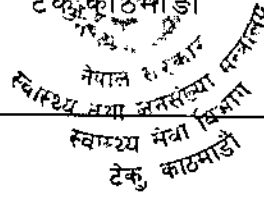 टेकु, काठमाडौं
नेपाल सरकार
स्वास्थ्य तथा जनसंख्या मन्त्रालय
स्वास्थ्य सेवा विभाग
टेकु, काठमाडौं